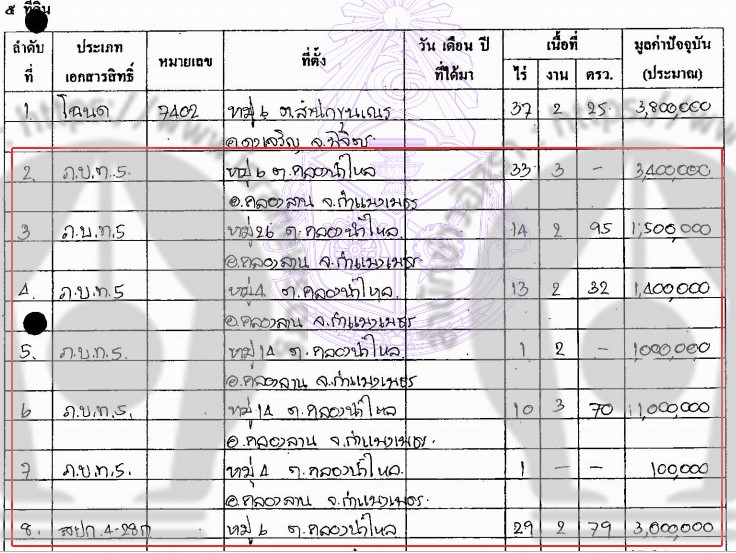 ๕ ที่ดิน
ลำดับที่ ประเภทเอกสารสิทธิ์ หมายเลข ที่ตั้ง วัน เดือน ปี ที่ได้มา เนื้อที่ ไร่ งาน ตรว. มูลค่าปัจจุบัน (ประมาณ)
1 โฉนด 7402 หมู่ 6 ต.สำนักขุนเณร 37 2 25 3,800,000
อ.ดงเจริญ จ.พิจิตร
2 ภ.บ.ท.5. หมู่ 6 ต.คลองน้ำไหล 33 3 - 3,400,000
อ.คลองลาน จ.กำแพงเพชร
3 ภ.บ.ท.5 หมู่ 26 ต.คลองน้ำไหล 14 2 95 1,500,000
อ.คลองลาน จ.กำแพงเพชร
4. ภ.บ.ท.5 หมู่ 4 ต.คลองน้ำไหล 13 2 32 1,400,000
อ.คลองลาน จ.กำแพงเพชร
5. ภ.บ.ท.5. หมู่ 14 ต.คลองน้ำไหล 1 2 -
อ.คลองลาน จ.กำแพงเพชร
6 ภ.บ.ท.5. หมู่ 14 ต.คลองน้ำไหล 10 3 70
อ.คลองลาน จ.กำแพงเพชร.
7 ภ.บ.ท.5. หมู่ 4 ต.คลองน้ำไหล 1 - - 100,000
อ.คลองลาน จ.กำแพงเพชร
8. สปก.4-28ก หมู่ 6 ต.คลองน้ำไหล 29 2 79 3,000,000